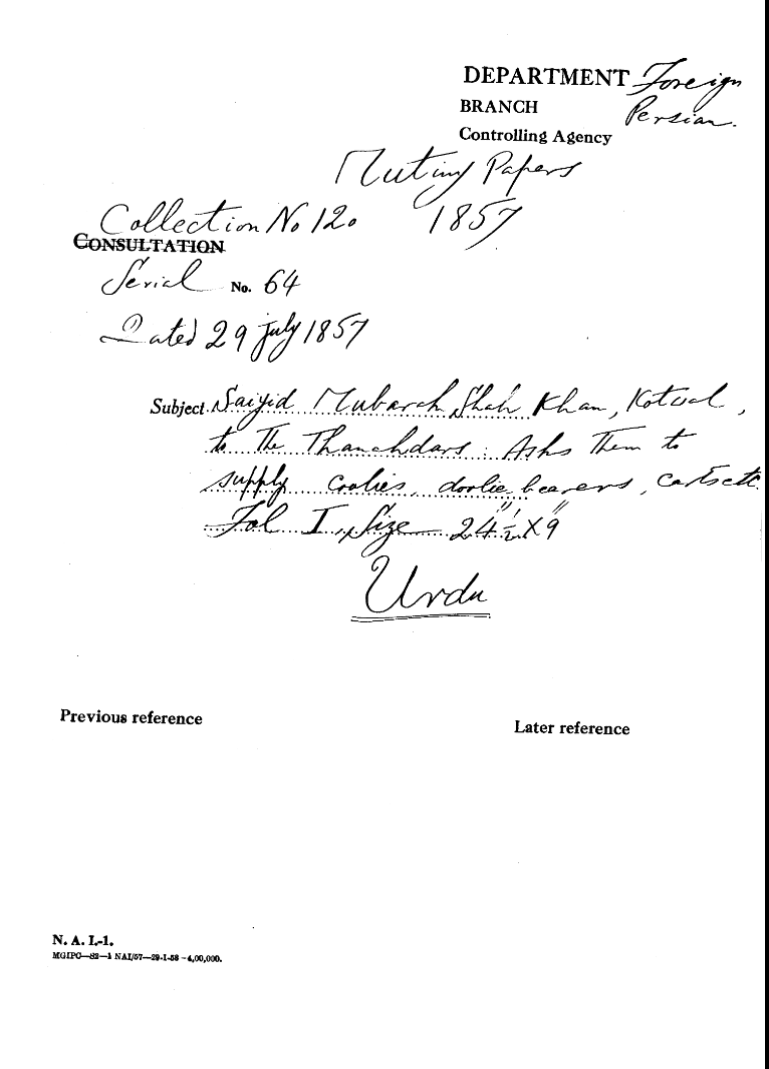 DEPARTMENT Foreign
BRANCH Persian.
Controlling Agency
Mutiny Papers
Collection No 120 1857
CONSULTATION
Serial No. 64
Dated 29 July 1857
Subject Saiyid Mubarak Shah Khan, Kotwal,
to the Thanahdars: Asks them to
supply Coolies, doolie bearers, carts etc.
Fol I, Size 24½" X 9"
Urdu
Previous reference
Later reference
N. A. I.-1.
MGIPC—S2—1 NAI/57—29-1-58—4,00,000.